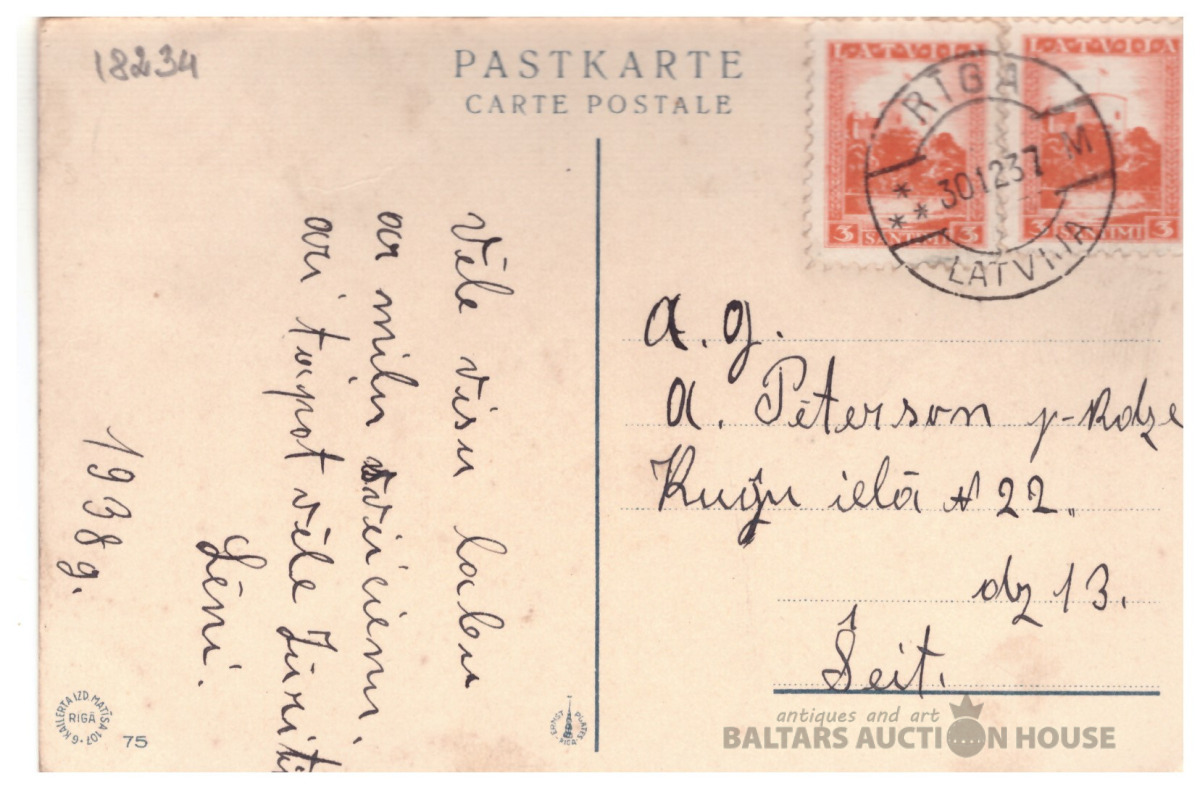 18234
PASTKARTE
CARTE POSTALE
LATVIJA
3 SANTIMI 3
LATVIJA
3 SANTIMI 3
RIGA M
301237
LATVIJA
Vēle visu labu
ar mīļu sveicieni,
ari tāpat vēle
Lēni.
1938 g.
A. g.
A. Pēterson
Kuģu ielā № 22.
dz 13.
Šeit.
KAILERTA IZD. MATĪSA 107-6
RIGĀ
75
ERNST PLATES
RIGA
antiques and art
BALTARS AUCTION HOUSE